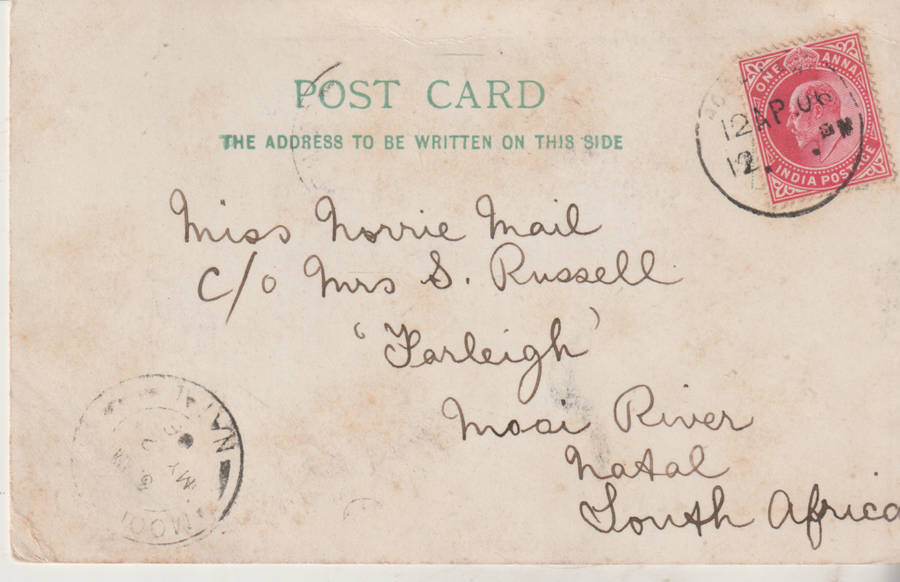 POST CARD
THE ADDRESS TO BE WRITTEN ON THIS SIDE
ONE ANNA
INDIA POSTAGE
12 AP 06
12. PM
Miss Norrie Mail
c/o Mrs S. Russell
'Farleigh'
Mooi River
Natal
South Africa
NATAL
MY
MOOI